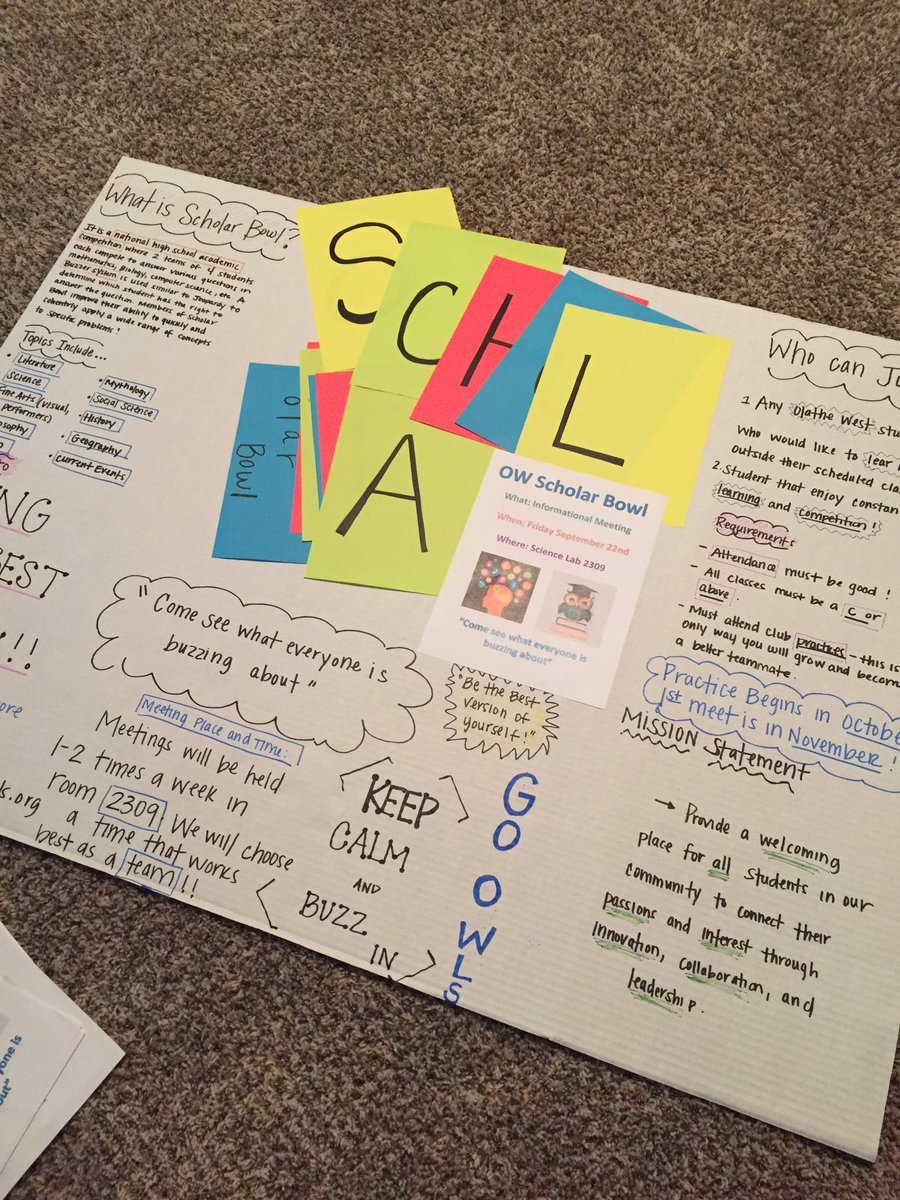 What is Scholar Bowl?
It is a national high school academic
competition where 2 teams of 4 students
each compete to answer various questions in
mathematics, Biology, computer science, etc. A
Buzzer system is used similar to Jeopardy to
determine which student has the right to
answer the question. Members of Scholar
Bowl improve their ability to quickly and
coherently apply a wide range of concepts
to specific problems!
Topics Include...
• Literature
Science
Fine Arts (visual,
performers)
• Mythology
• Social Science
• History
• Geography
• Current Events
EST
!!
"Come see what everyone is
buzzing about"
Meeting Place and Time:
Meetings will be held
1-2 times a week in
room 2309. We will choose
a time that works
best as a team!!
.org
S
C
H
L
A
olar
Bowl
OW Scholar Bowl
What: Informational Meeting
When: Friday September 22nd
Where: Science Lab 2309
"Come see what everyone is
buzzing about"
"Be the Best
version of
yourself!"
KEEP
CALM
AND
BUZZ
IN
GO OWLS
Who can
1. Any Olathe West
Who would like to
outside their scheduled
2. Student that enjoy
learning and competition!
Requirements
- Attendance must be good!
- All classes must be a C or
above.
- Must attend club practices - this is
only way you will grow and become
a better teammate.
Practice Begins in October
1st meet is in November!
MISSION Statement
→ Provide a welcoming
place for all students in our
community to connect their
passions and interest through
innovation, collaboration, and
leadership.